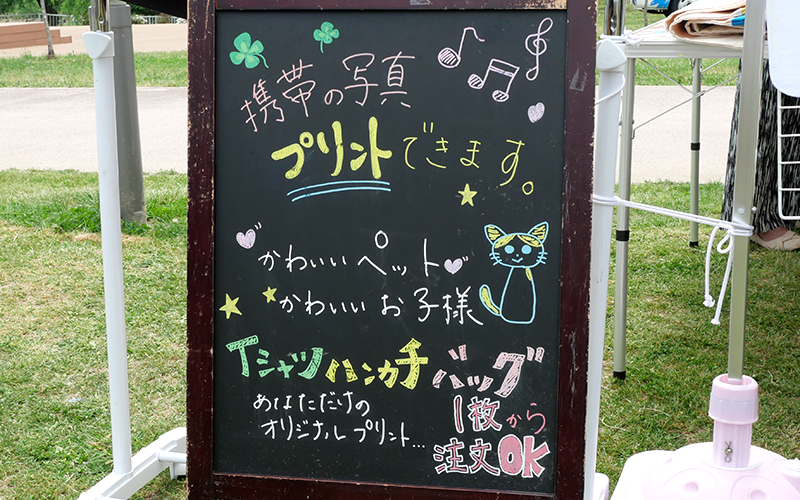 携帯の写真
プリントできます。
かわいいペット
かわいいお子様
Tシャツ ハンカチ バッグ
あなただけの
オリジナルプリント...
1枚から
注文OK